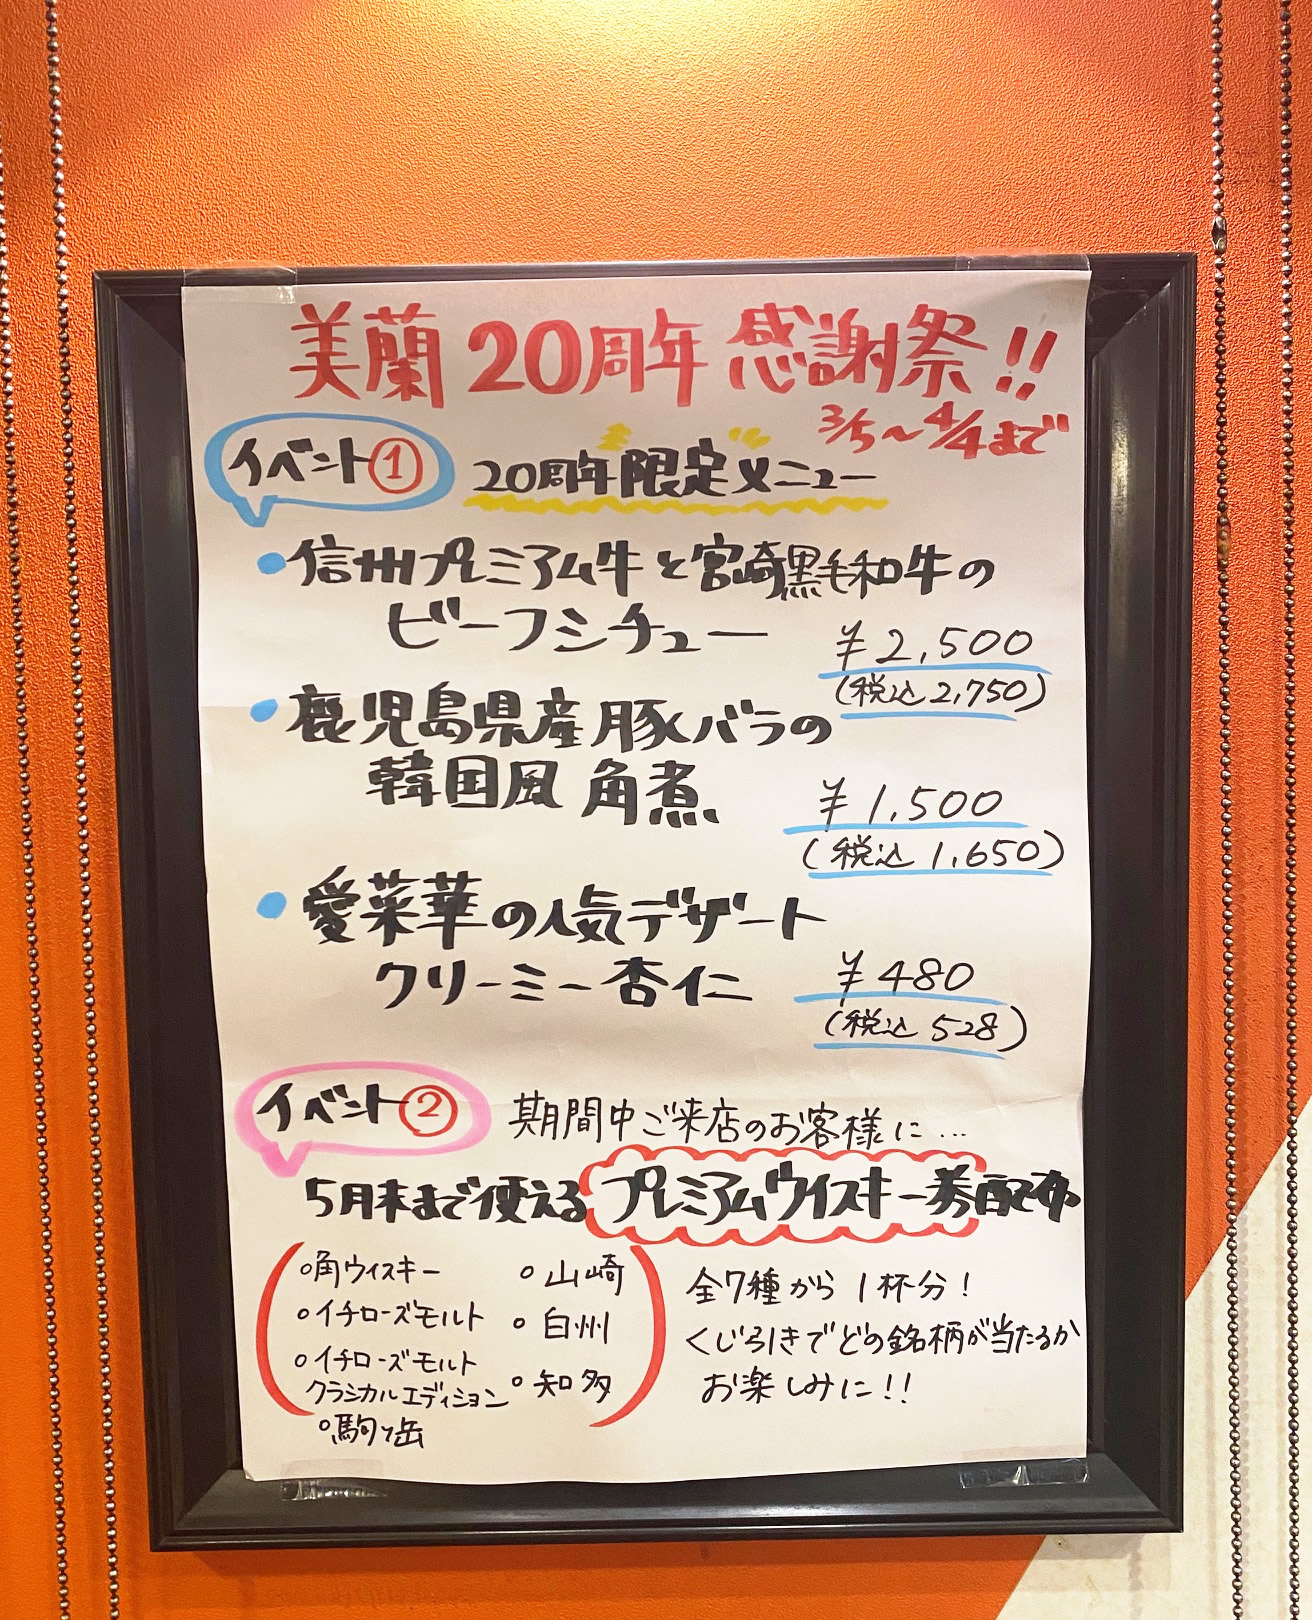 美蘭20周年感謝祭!!
3/5～4/4まで
イベント①
20周年限定メニュー
・信州プレミアム牛と宮崎黒毛和牛の
ビーフシチュー
¥2,500
(税込2,750)
・鹿児島県産豚バラの
韓国風角煮
¥1,500
(税込1,650)
・愛菜華の人気デザート
クリーミー杏仁
¥480
(税込528)
イベント②
期間中ご来店のお客様に…
5月末まで使えるプレミアムウイスキー券配布
○角ウィスキー
○イチローズモルト
○イチローズモルト
クラシカルエディション
○駒ヶ岳
○山崎
○白州
○知多
全7種から1杯分!
くじ引きでどの銘柄が当たるか
お楽しみに!!